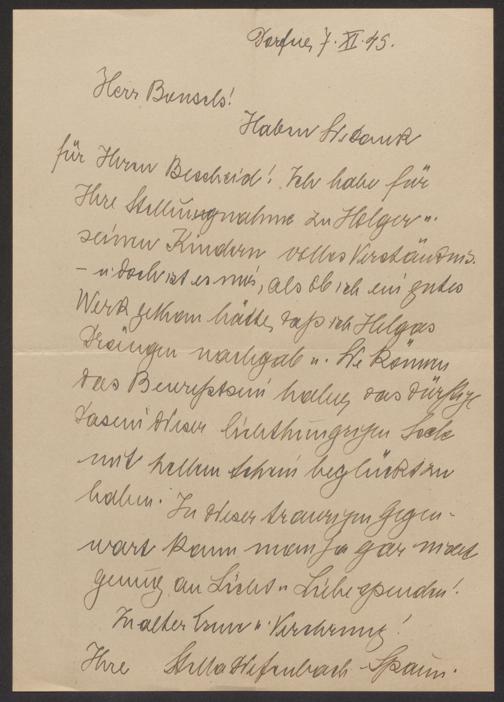 Dorfen, 7. XI. 45.
Herr Bonsels!
Haben Sie Dank
für Ihren Bescheid! Ich habe für
Ihre Stellungnahme zu Holger u.
seinen Kindern volles Verständnis.
– u. doch ist es mir, als ob ich ein gutes
Werk getan hätte, daß ich Helgas
Drängen nachgab u. Sie können
das Bewußtsein haben, das dürftige
Dasein dieser lichthungrigen Seele
mit hellem Schein beglückt zu
haben. In dieser traurigen Gegen-
wart kann man ja gar nicht
genug an Licht u. Liebe spenden!
In alter Treue u. Verehrung!
Ihre Stella Diefenbach-Spaun.